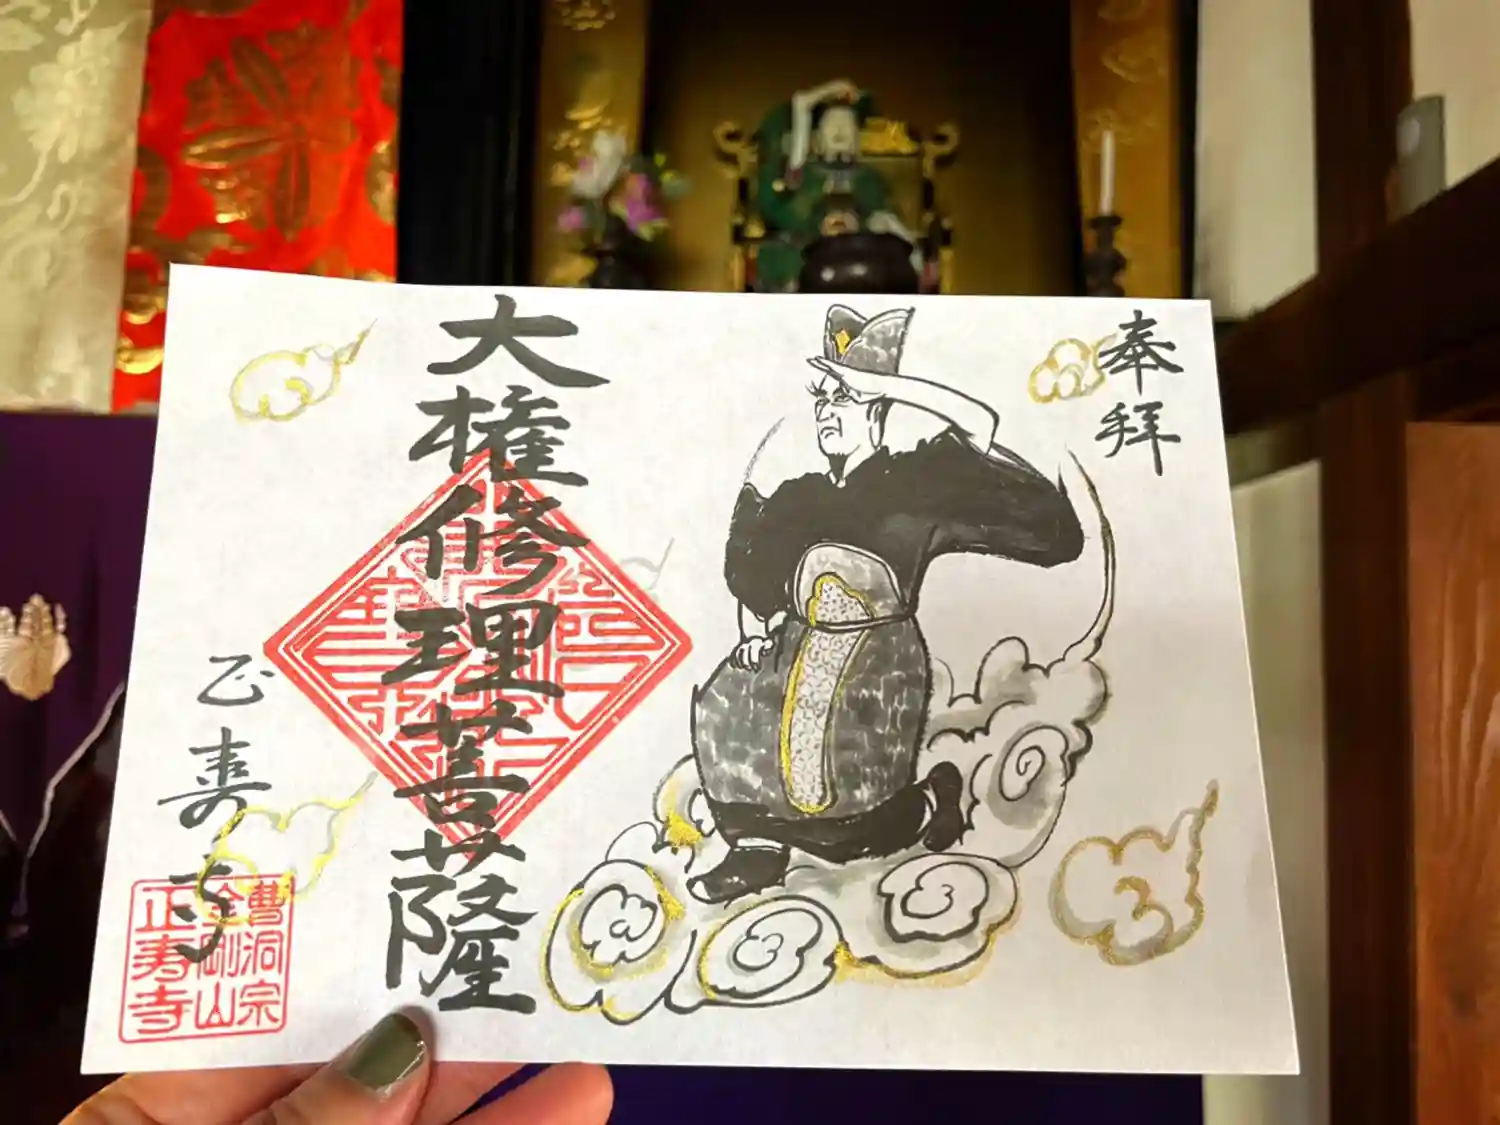 奉拝
大権修理菩薩
正寿寺
曹洞宗
金剛山
正寿寺